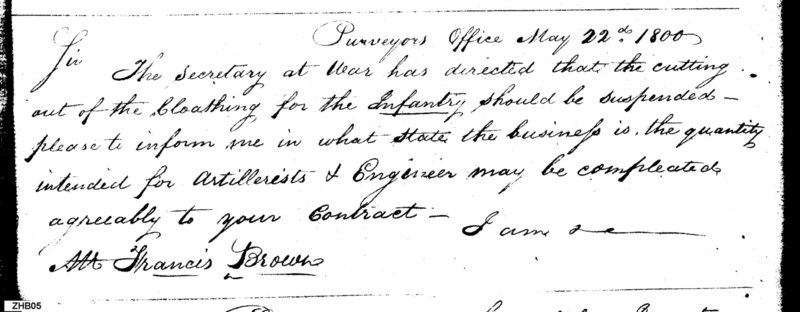 Purveyors Office May 22d. 1800
Sir
The Secretary at War has directed that the cutting
out of the Cloathing for the Infantry should be suspended –
please to inform me in what state the business is. the quantity
intended for Artillerists & Engineer may be compleated
agreeably to your Contract –
I am &c
Mr Francis Brown
ZHB05